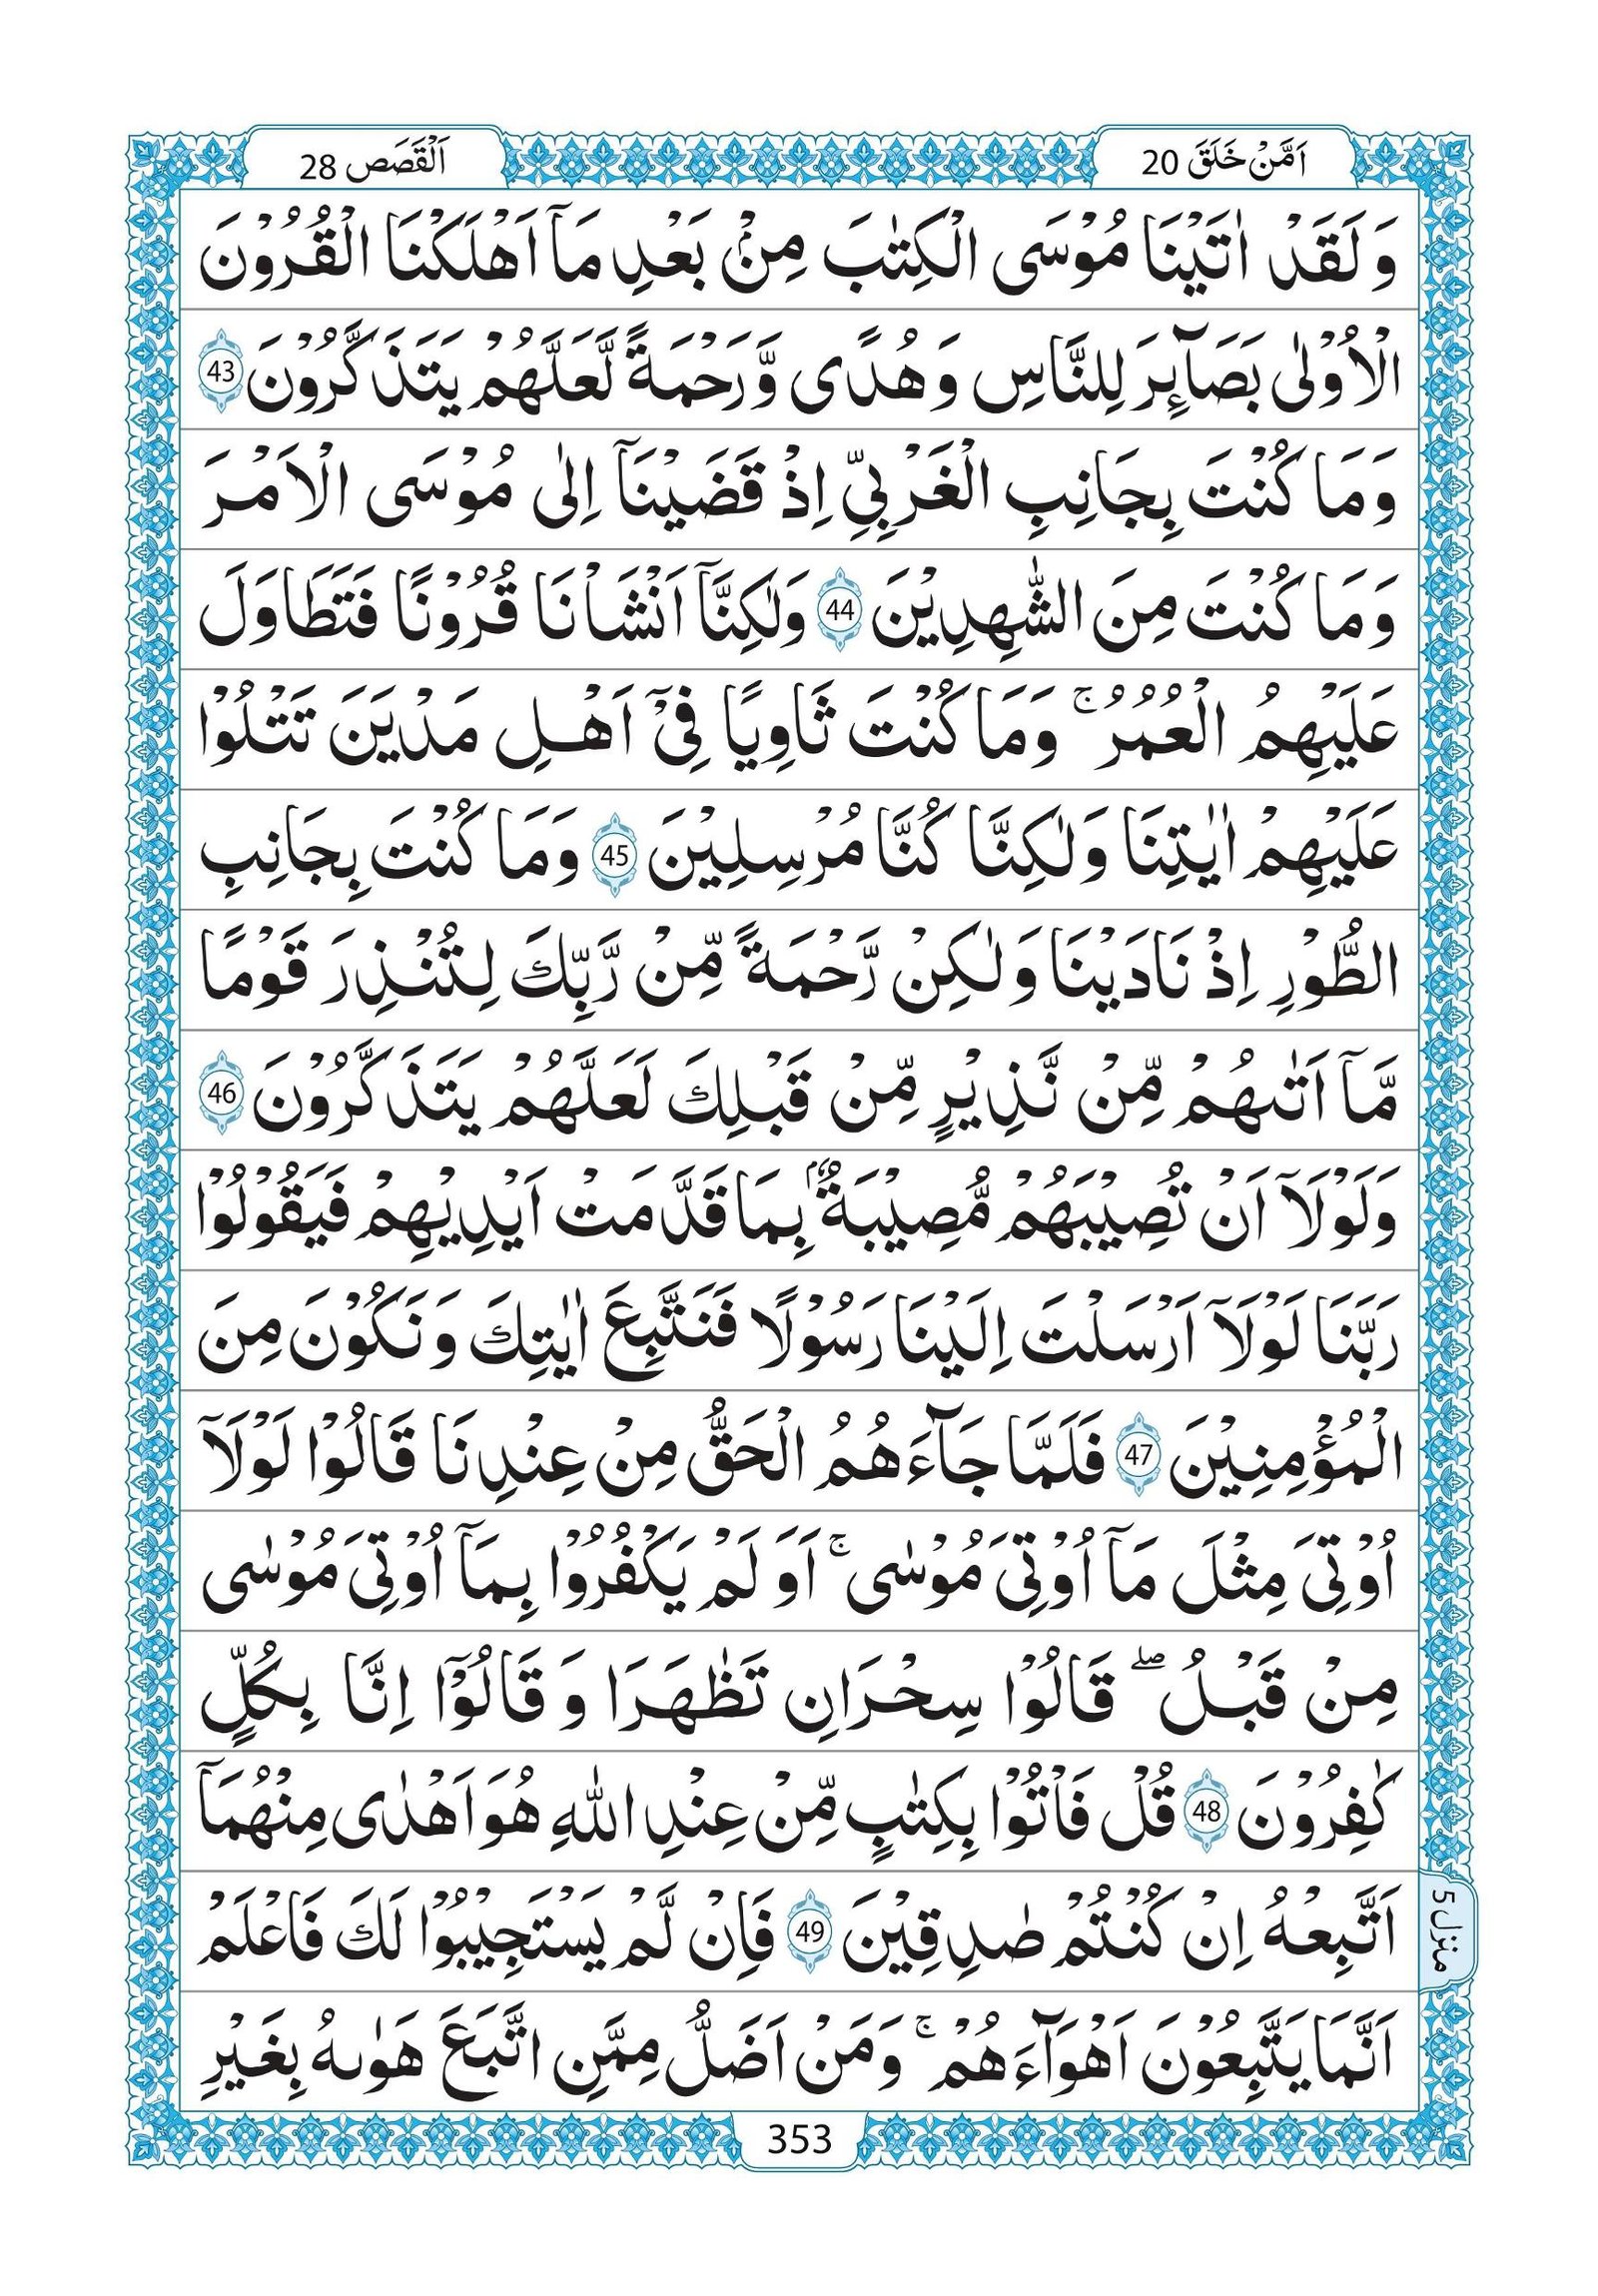 اَمَّنْ خَلَقَ 20
اَلْقَصَص 28
وَ لَقَدْ اٰتَیْنَا مُوْسَی الْكِتٰبَ مِنْۢ بَعْدِ مَاۤ اَهْلَكْنَا الْقُرُوْنَ
الْاُوْلٰی بَصَآىِٕرَ لِلنَّاسِ وَ هُدًی وَّ رَحْمَةً لَّعَلَّهُمْ یَتَذَكَّرُوْنَ 43
وَ مَا كُنْتَ بِجَانِبِ الْغَرْبِیِّ اِذْ قَضَیْنَاۤ اِلٰی مُوْسَی الْاَمْرَ
وَ مَا كُنْتَ مِنَ الشّٰهِدِیْنَ 44 وَلٰكِنَّاۤ اَنْشَاْنَا قُرُوْنًا فَتَطَاوَلَ
عَلَیْهِمُ الْعُمُرُ ۚ وَ مَا كُنْتَ ثَاوِیًا فِیْۤ اَهْلِ مَدْیَنَ تَتْلُوْا
عَلَیْهِمْ اٰیٰتِنَا وَلٰكِنَّا كُنَّا مُرْسِلِیْنَ 45 وَ مَا كُنْتَ بِجَانِبِ
الطُّوْرِ اِذْ نَادَیْنَا وَلٰكِنْ رَّحْمَةً مِّنْ رَّبِّكَ لِتُنْذِرَ قَوْمًا
مَّاۤ اَتٰىهُمْ مِّنْ نَّذِیْرٍ مِّنْ قَبْلِكَ لَعَلَّهُمْ یَتَذَكَّرُوْنَ 46
وَلَوْلَاۤ اَنْ تُصِیْبَهُمْ مُّصِیْبَةٌۢ بِمَا قَدَّمَتْ اَیْدِیْهِمْ فَیَقُوْلُوْا
رَبَّنَا لَوْلَاۤ اَرْسَلْتَ اِلَیْنَا رَسُوْلًا فَنَتَّبِعَ اٰیٰتِكَ وَ نَكُوْنَ مِنَ
الْمُؤْمِنِیْنَ 47 فَلَمَّا جَآءَهُمُ الْحَقُّ مِنْ عِنْدِنَا قَالُوْا لَوْلَاۤ
اُوْتِیَ مِثْلَ مَاۤ اُوْتِیَ مُوْسٰی ۚ اَوَ لَمْ یَكْفُرُوْا بِمَاۤ اُوْتِیَ مُوْسٰی
مِنْ قَبْلُ ۖ قَالُوْا سِحْرٰنِ تَظٰهَرَا وَ قَالُوْۤا اِنَّا بِكُلٍّ
كٰفِرُوْنَ 48 قُلْ فَاْتُوْا بِكِتٰبٍ مِّنْ عِنْدِ اللّٰهِ هُوَ اَهْدٰی مِنْهُمَاۤ
اَتَّبِعْهُ اِنْ كُنْتُمْ صٰدِقِیْنَ 49 فَاِنْ لَّمْ یَسْتَجِیْبُوْا لَكَ فَاعْلَمْ
اَنَّمَا یَتَّبِعُوْنَ اَهْوَآءَهُمْ ۚ وَ مَنْ اَضَلُّ مِمَّنِ اتَّبَعَ هَوٰىهُ بِغَیْرِ
منزل 5
353